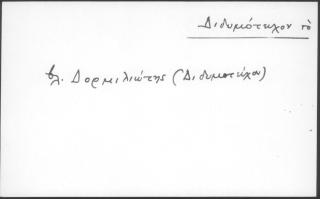 Διδυμότειχον τὸ
βλ. Δορμιλιώτης (Διδυμοτείχου)